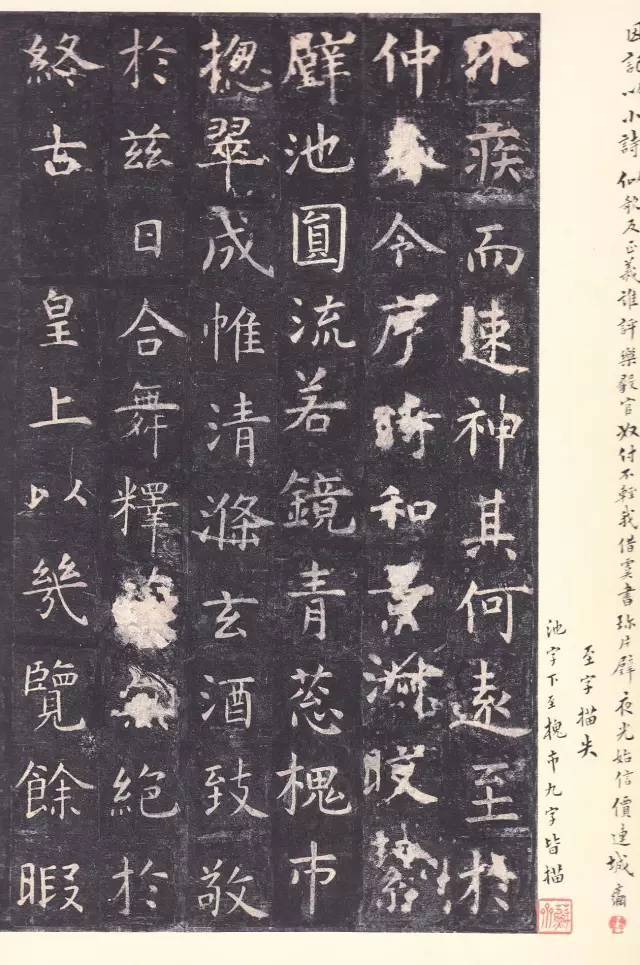 因記以小詩似欹反正義誰評樂毅官奴付不輕我借虞書珎片璧夜光始信價連城
至字描失
池字下至槐市九字皆描
不疾而速神其何遠至於
仲春令序時和景淑晈
璧池圓流若鏡青葱槐市
摠翠成帷清滌玄酒致敬
於茲日合舞釋菜無絕於
終古 皇上以幾覽餘暇